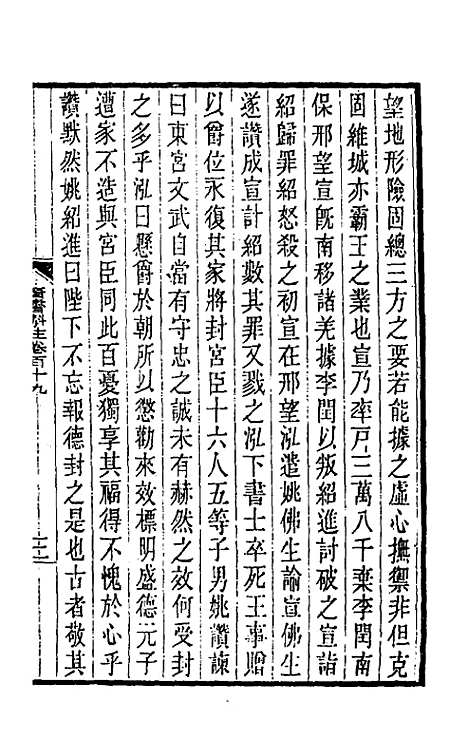 望地形險固總三方之要若能據之虛心撫禦非但克
固維城亦霸王之業也宣乃率戶三萬八千棄李閏南
保邢望宣旣南移諸羌據李閏以叛紹進討破之宣詣
紹歸罪紹怒殺之初宣在邢望泓遣姚佛生諭宣佛生
遂讚成宣計紹數其罪又戮之泓下書士卒死王事贈
以爵位永復其家將封宮臣十六人五等子男姚讚諫
曰東宮文武自當有守忠之誠未有赫然之效何受封
之多乎泓曰懸爵於朝所以懲勸來效標明盛德元子
遭家不造與宮臣同此百憂獨享其福得不愧於心乎
讚默然姚紹進曰陛下不忘報德封之是也古者敬其
晉書斠注卷百十九